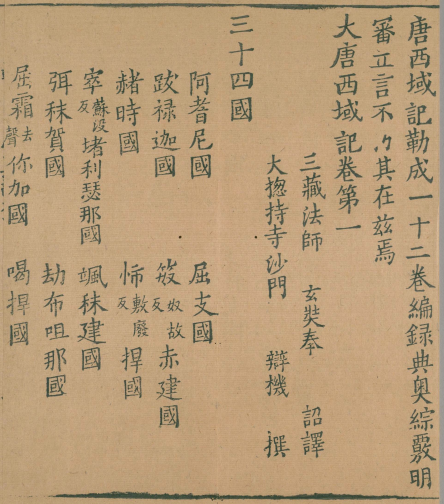 唐西域記勒成一十二卷編録典奥綜覈明
審立言不朽其在兹焉
大唐西域記卷第一
三藏法師 玄奘奉 詔譯
大揔持寺沙門 辯機 撰
三十四國
阿耆尼國 屈支國
跋禄迦國 笯奴故反赤建國
赭時國 㤄敷廢反捍國
窣蘇没反堵利瑟那國 颯秣建國
弭秣賀國 劫布呾那國
屈霜去聲你加國 喝捍國